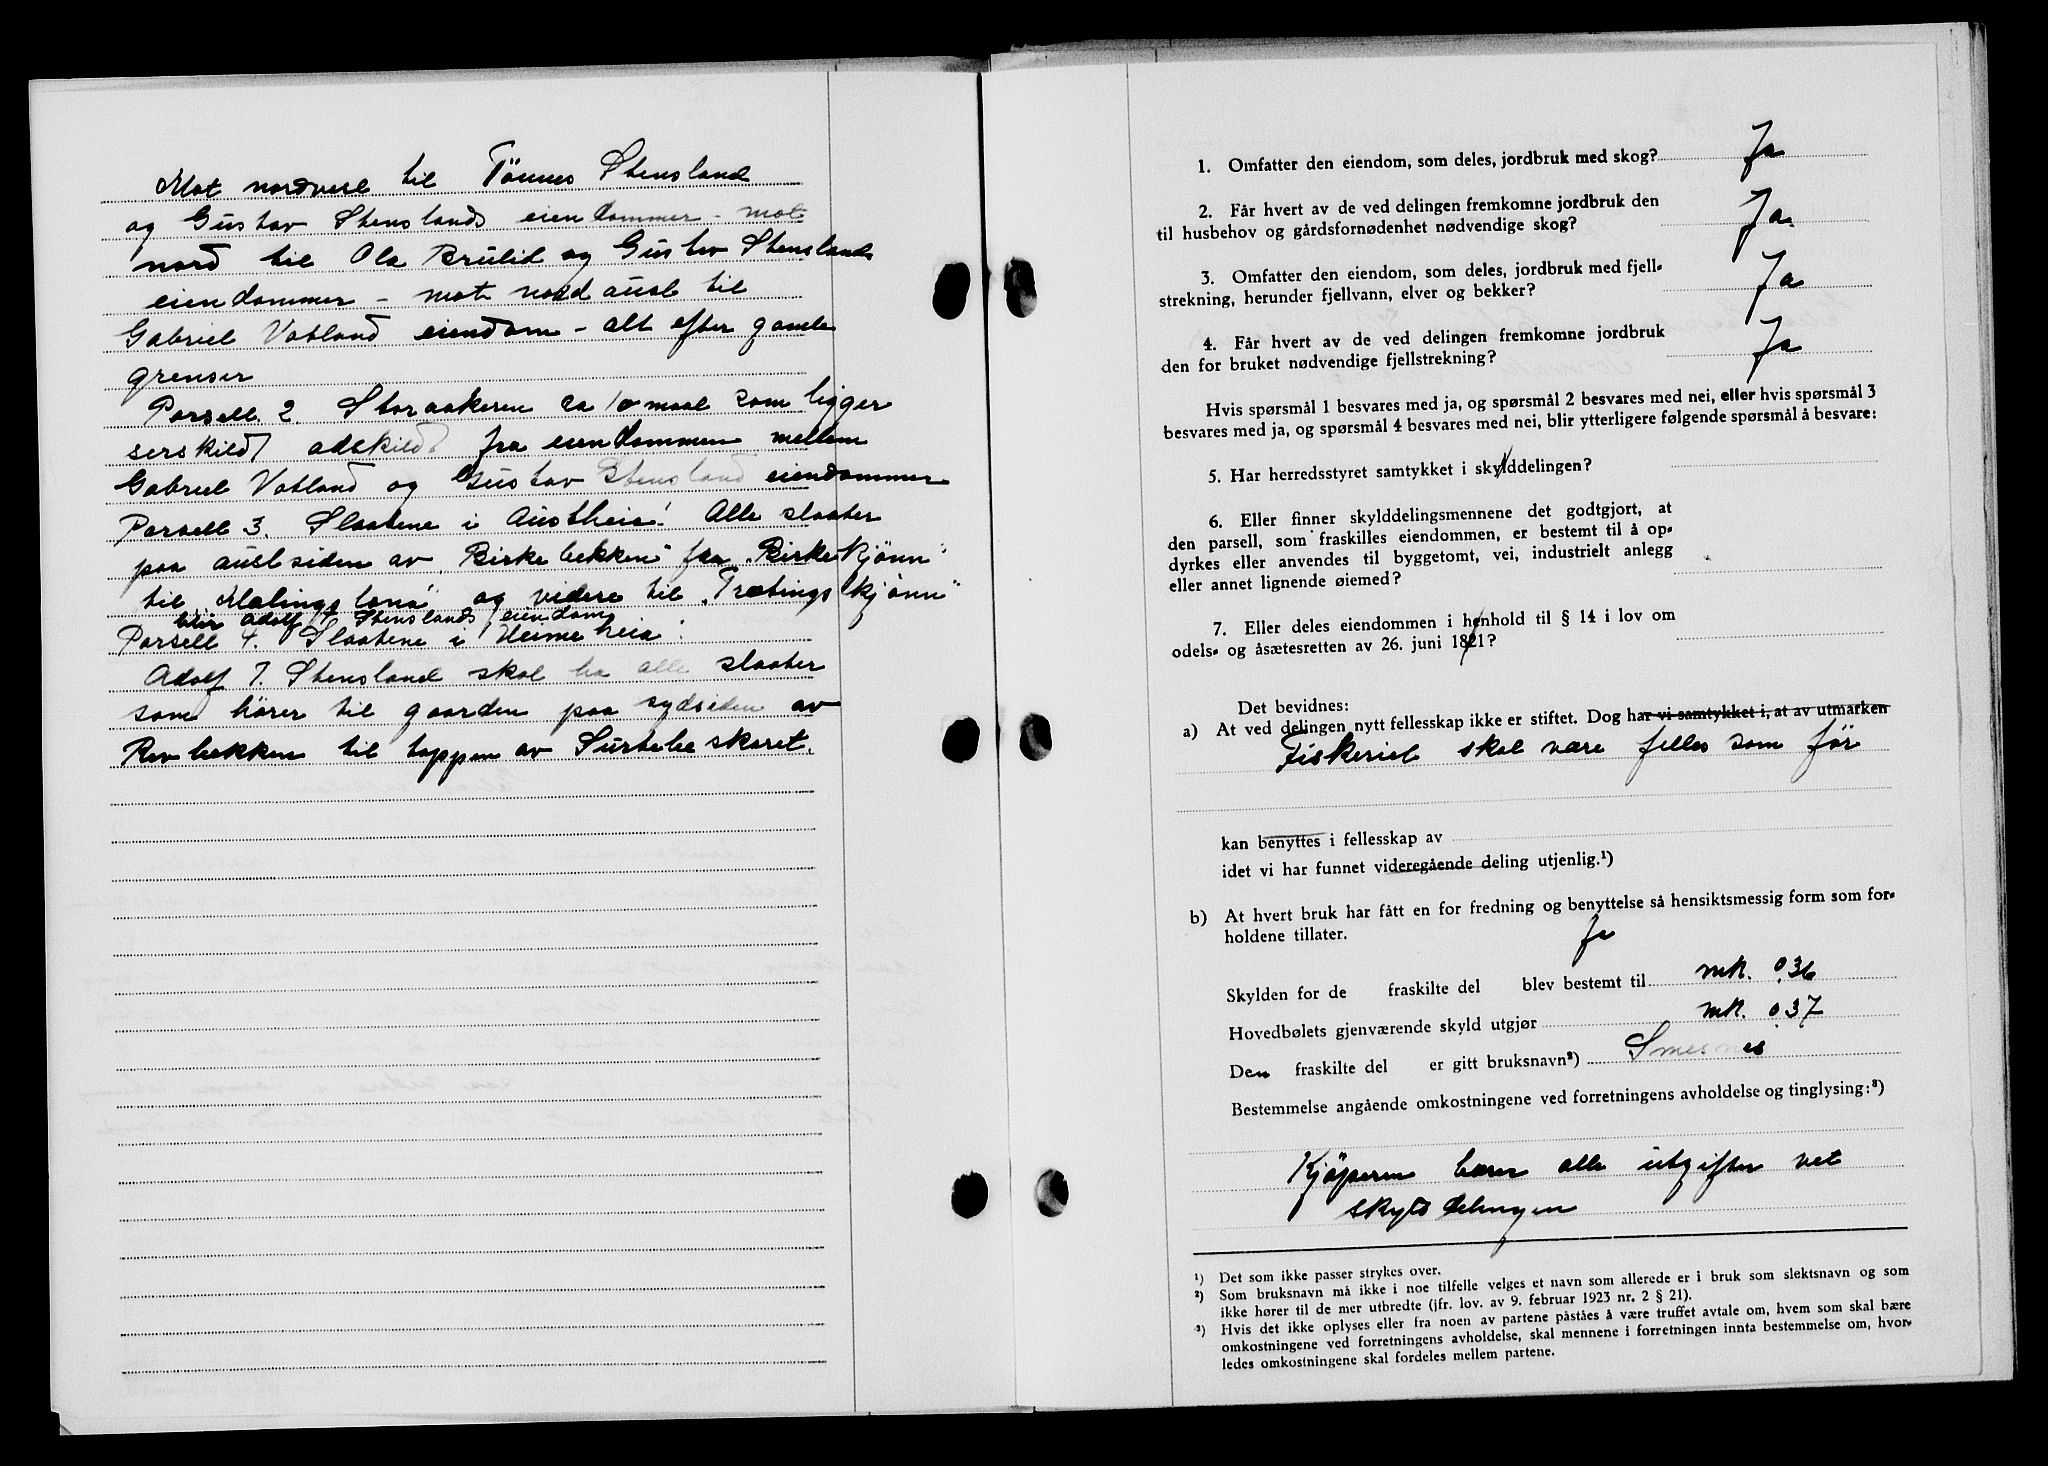 Mot nordvest til Tönnes Stensland
og Gustav Stenslands eiendommer - mot
nord til Ola Brulid og Gustav Stenslands
eiendommer - mot nordaust til
Gabriel Vatland eiendom - alt efter gamle
grenser
Parsell 2. Storaakeren ca 10 maal som ligger
serskild adskild fra eiendommen mellem
Gabriel Vatland og Gustav Stensland eiendommer
Parsell 3. Slaatene i Austheia! Alle slaater
paa austsiden av "Birkebekken" fra "Birkekjönn"
til "Malingslona" og videre til "Trætingskjönn"
blir Adolf T. Stenslands eiendom
Parsell 4. Slaatene i Heimeheia:
Adolf T. Stensland skal ha alle slaater
som hörer til gaarden paa sydsiden av
Revbekken til toppen av Surtebeskaret.
1. Omfatter den eiendom, som deles, jordbruk med skog? Ja
2. Får hvert av de ved delingen fremkomne jordbruk den
til husbehov og gårdsfornødenhet nødvendige skog? Ja.
3. Omfatter den eiendom, som deles, jordbruk med fjell-
strekning, herunder fjellvann, elver og bekker? Ja
4. Får hvert av de ved delingen fremkomne jordbruk
den for bruket nødvendige fjellstrekning? Ja
Hvis spørsmål 1 besvares med ja, og spørsmål 2 besvares med nei, eller hvis spørsmål 3
besvares med ja, og spørsmål 4 besvares med nei, blir ytterligere følgende spørsmål å besvare:
5. Har herredsstyret samtykket i skylddelingen?
6. Eller finner skylddelingsmennene det godtgjort, at
den parsell, som fraskilles eiendommen, er bestemt til å op-
dyrkes eller anvendes til byggetomt, vei, industrielt anlegg
eller annet lignende øiemed?
7. Eller deles eiendommen i henhold til § 14 i lov om
odels- og åsætesretten av 26. juni 1821?
Det bevidnes:
a) At ved delingen nytt fellesskap ikke er stiftet. Dog har vi samtykket i, at av utmarken
Fiskeriet skal være felles som før
kan benyttes i fellesskap av
idet vi har funnet videregående deling utjenlig.¹)
b) At hvert bruk har fått en for fredning og benyttelse så hensiktsmessig form som for-
holdene tillater. Ja
Skylden for de fraskilte del blev bestemt til mk. 0,36
Hovedbølets gjenværende skyld utgjør mk. 0,37
Den fraskilte del er gitt bruksnavn²) Smesnes
Bestemmelse angående omkostningene ved forretningens avholdelse og tinglysing:³)
Kjöperen bærer alle utgifter vet
skylddelingen
¹) Det som ikke passer strykes over.
²) Som bruksnavn må ikke i noe tilfelle velges et navn som allerede er i bruk som slektsnavn og som
ikke hører til de mer utbredte (jfr. lov. av 9. februar 1923 nr. 2 § 21).
³) Hvis det ikke oplyses eller fra noen av partene påståes å være truffet avtale om, hvem som skal bære
omkostningene ved forretningens avholdelse, skal mennene i forretningen innta bestemmelse om, hvor-
ledes omkostningene skal fordeles mellem partene.